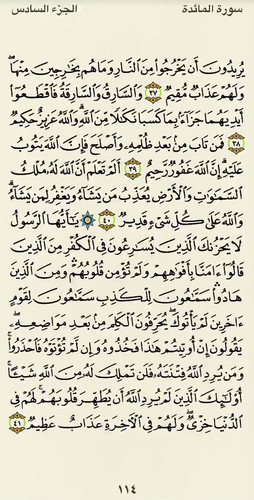 الجزء السادس سورة المائدة
يُرِيدُونَ أَن يَخْرُجُوا۟ مِنَ ٱلنَّارِ وَمَا هُم بِخَٰرِجِينَ مِنْهَا ۖ
وَلَهُمْ عَذَابٌ مُّقِيمٌ ٣٧ وَٱلسَّارِقُ وَٱلسَّارِقَةُ فَٱقْطَعُوٓا۟
أَيْدِيَهُمَا جَزَآءًۢ بِمَا كَسَبَا نَكَٰلًا مِّنَ ٱللَّهِ ۗ وَٱللَّهُ عَزِيزٌ حَكِيمٌ
٣٨ فَمَن تَابَ مِنۢ بَعْدِ ظُلْمِهِۦ وَأَصْلَحَ فَإِنَّ ٱللَّهَ يَتُوبُ
عَلَيْهِ ۗ إِنَّ ٱللَّهَ غَفُورٌ رَّحِيمٌ ٣٩ أَلَمْ تَعْلَمْ أَنَّ ٱللَّهَ لَهُۥ مُلْكُ
ٱلسَّمَٰوَٰتِ وَٱلْأَرْضِ يُعَذِّبُ مَن يَشَآءُ وَيَغْفِرُ لِمَن يَشَآءُ ۗ
وَٱللَّهُ عَلَىٰ كُلِّ شَىْءٍ قَدِيرٌ ٤٠ ۞ يَٰٓأَيُّهَا ٱلرَّسُولُ
لَا يَحْزُنكَ ٱلَّذِينَ يُسَٰرِعُونَ فِى ٱلْكُفْرِ مِنَ ٱلَّذِينَ
قَالُوٓا۟ ءَامَنَّا بِأَفْوَٰهِهِمْ وَلَمْ تُؤْمِن قُلُوبُهُمْ ۛ وَمِنَ ٱلَّذِينَ
هَادُوا۟ ۛ سَمَّٰعُونَ لِلْكَذِبِ سَمَّٰعُونَ لِقَوْمٍ
ءَاخَرِينَ لَمْ يَأْتُوكَ ۖ يُحَرِّفُونَ ٱلْكَلِمَ مِنۢ بَعْدِ مَوَاضِعِهِۦ ۖ
يَقُولُونَ إِنْ أُوتِيتُمْ هَٰذَا فَخُذُوهُ وَإِن لَّمْ تُؤْتَوْهُ فَٱحْذَرُوا۟ ۚ
وَمَن يُرِدِ ٱللَّهُ فِتْنَتَهُۥ فَلَن تَمْلِكَ لَهُۥ مِنَ ٱللَّهِ شَيْـًٔا ۚ
أُو۟لَٰٓئِكَ ٱلَّذِينَ لَمْ يُرِدِ ٱللَّهُ أَن يُطَهِّرَ قُلُوبَهُمْ ۚ لَهُمْ فِى
ٱلدُّنْيَا خِزْىٌ ۖ وَلَهُمْ فِى ٱلْءَاخِرَةِ عَذَابٌ عَظِيمٌ ٤١
١١٤